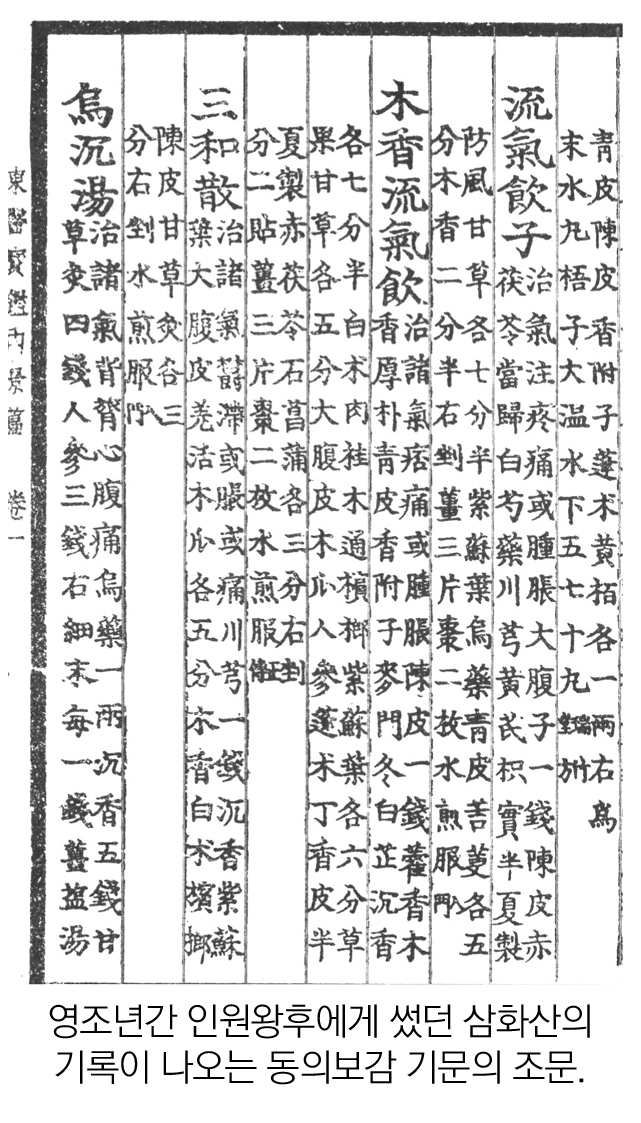 靑皮陳皮香附子蓬朮黃栢各一兩右爲
末水丸梧子大溫水下五七十丸
流氣飮子
治氣注疼痛或腫脹大腹子一錢陳皮赤
茯苓當歸白芍藥川芎黃芪枳實半夏製
防風甘草各七分半紫蘇葉烏藥靑皮苦蔞各五
分木香二分半右剉薑三片棗二枚水煎服入門
木香流氣飮
治諸氣痞痛或腫脹陳皮一錢藿香木
香厚朴靑皮香附子麥門冬白芷沉香
各七分半白朮肉桂木通檳榔紫蘇葉各六分草
果甘草各五分大腹皮木瓜人參蓬朮丁香皮半
夏製赤茯苓石菖蒲各三分右剉
分二貼薑三片棗二枚水煎服正傳
三和散
治諸氣鬱滯或脹或痛川芎一錢沉香紫蘇
葉大腹皮羌活木瓜各五分木香白朮檳榔
陳皮甘草灸各三
分右剉水煎服入門
烏沉湯
治諸氣背膂心腹痛烏藥一兩沉香五錢甘
草灸四錢人參三錢右細末每一錢薑塩湯
東醫寶鑑內景篇 卷一
영조년간 인원왕후에게 썼던 삼화산의
기록이 나오는 동의보감 기문의 조문.